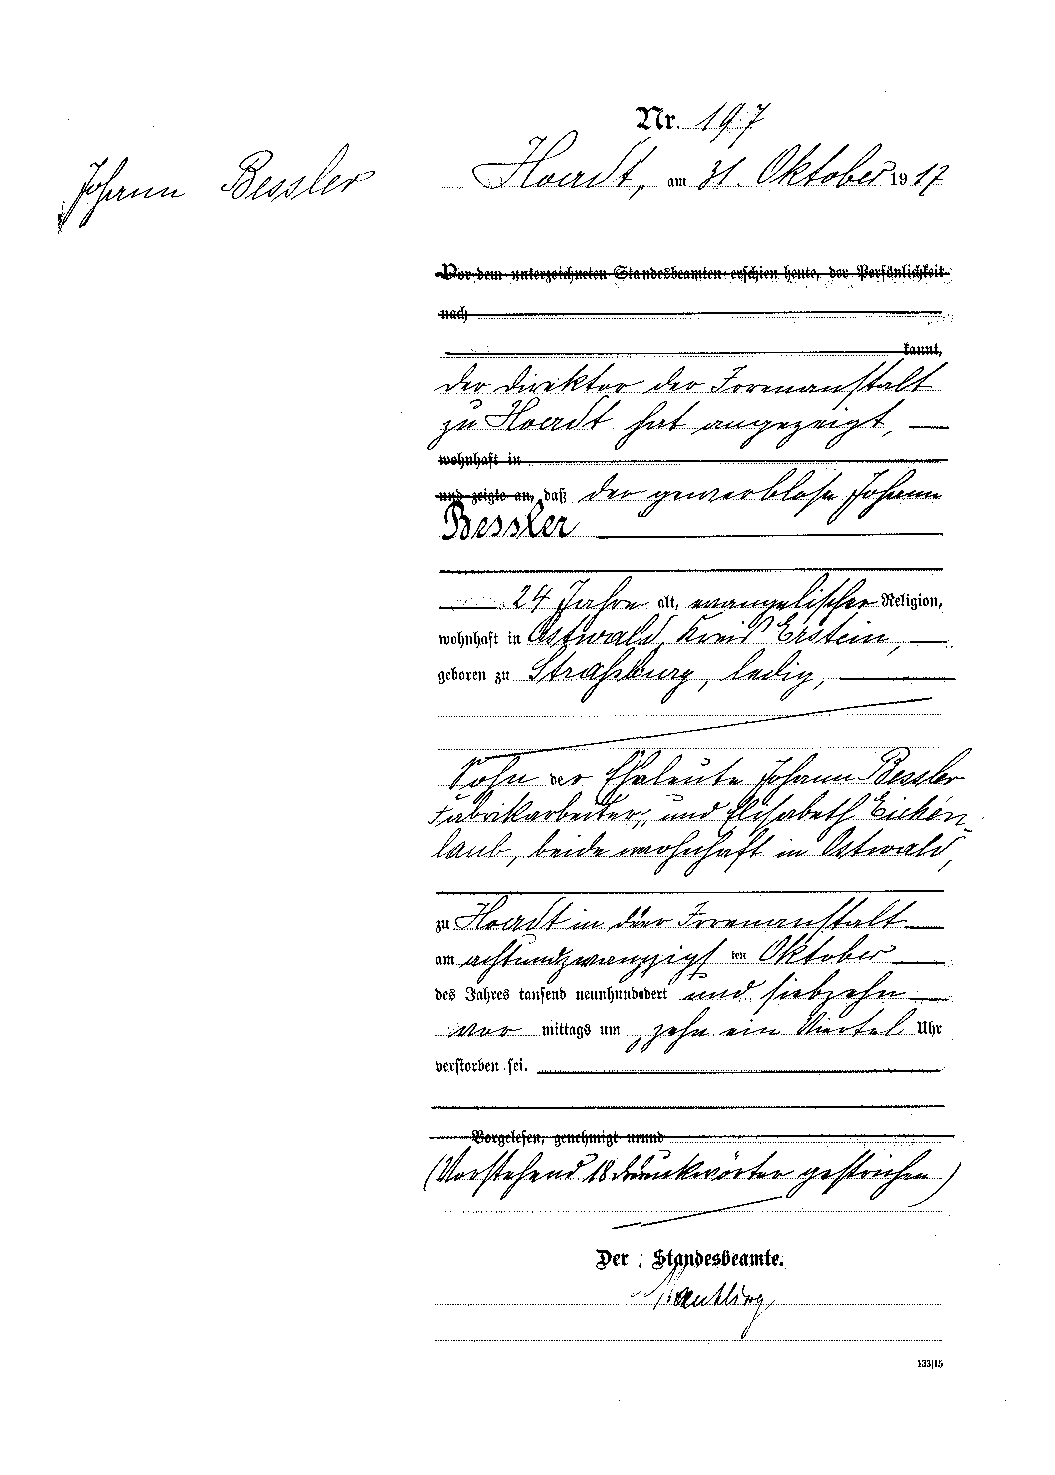 Nr. 197
Johann Bessler
Hoerdt, am 31. Oktober 1917
Vor dem unterzeichneten Standesbeamten erschien heute, der Persönlichkeit
nach
kannt,
der Direktor der Irrenanstalt
zu Hoerdt hat angezeigt,
wohnhaft in
und zeigte an, daß der gewerblose Johann
Bessler
24 Jahre alt, evangelischer Religion,
wohnhaft in Ostwald, Kreis Erstein,
geboren zu Straßburg, ledig,
Sohn der Eheleute Johann Bessler
Fabrikarbeiter, und Elisabeth Eicken-
laub, beide wohnhaft in Ostwald,
zu Hoerdt in der Irrenanstalt
am achtundzwanzigsten Oktober
des Jahres tausend neunhundert und siebzehn
vor mittags um zehn ein Viertel Uhr
verstorben sei.
Vorgelesen, genehmigt und
(Vorstehend 18 Druckwörter gestrichen)
Der Standesbeamte.
133|15